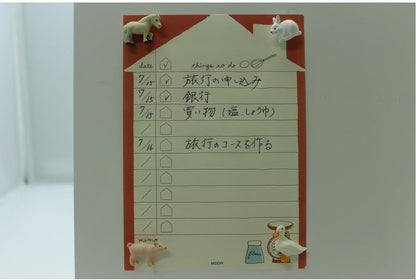 date ✓ things to do
7/15 ✓ 旅行の申し込み
7/15 ✓ 銀行
7/15 買い物 (塩、しょうゆ)
/
7/16 旅行のコースを作る
/
/
/
/
/
MIDORI